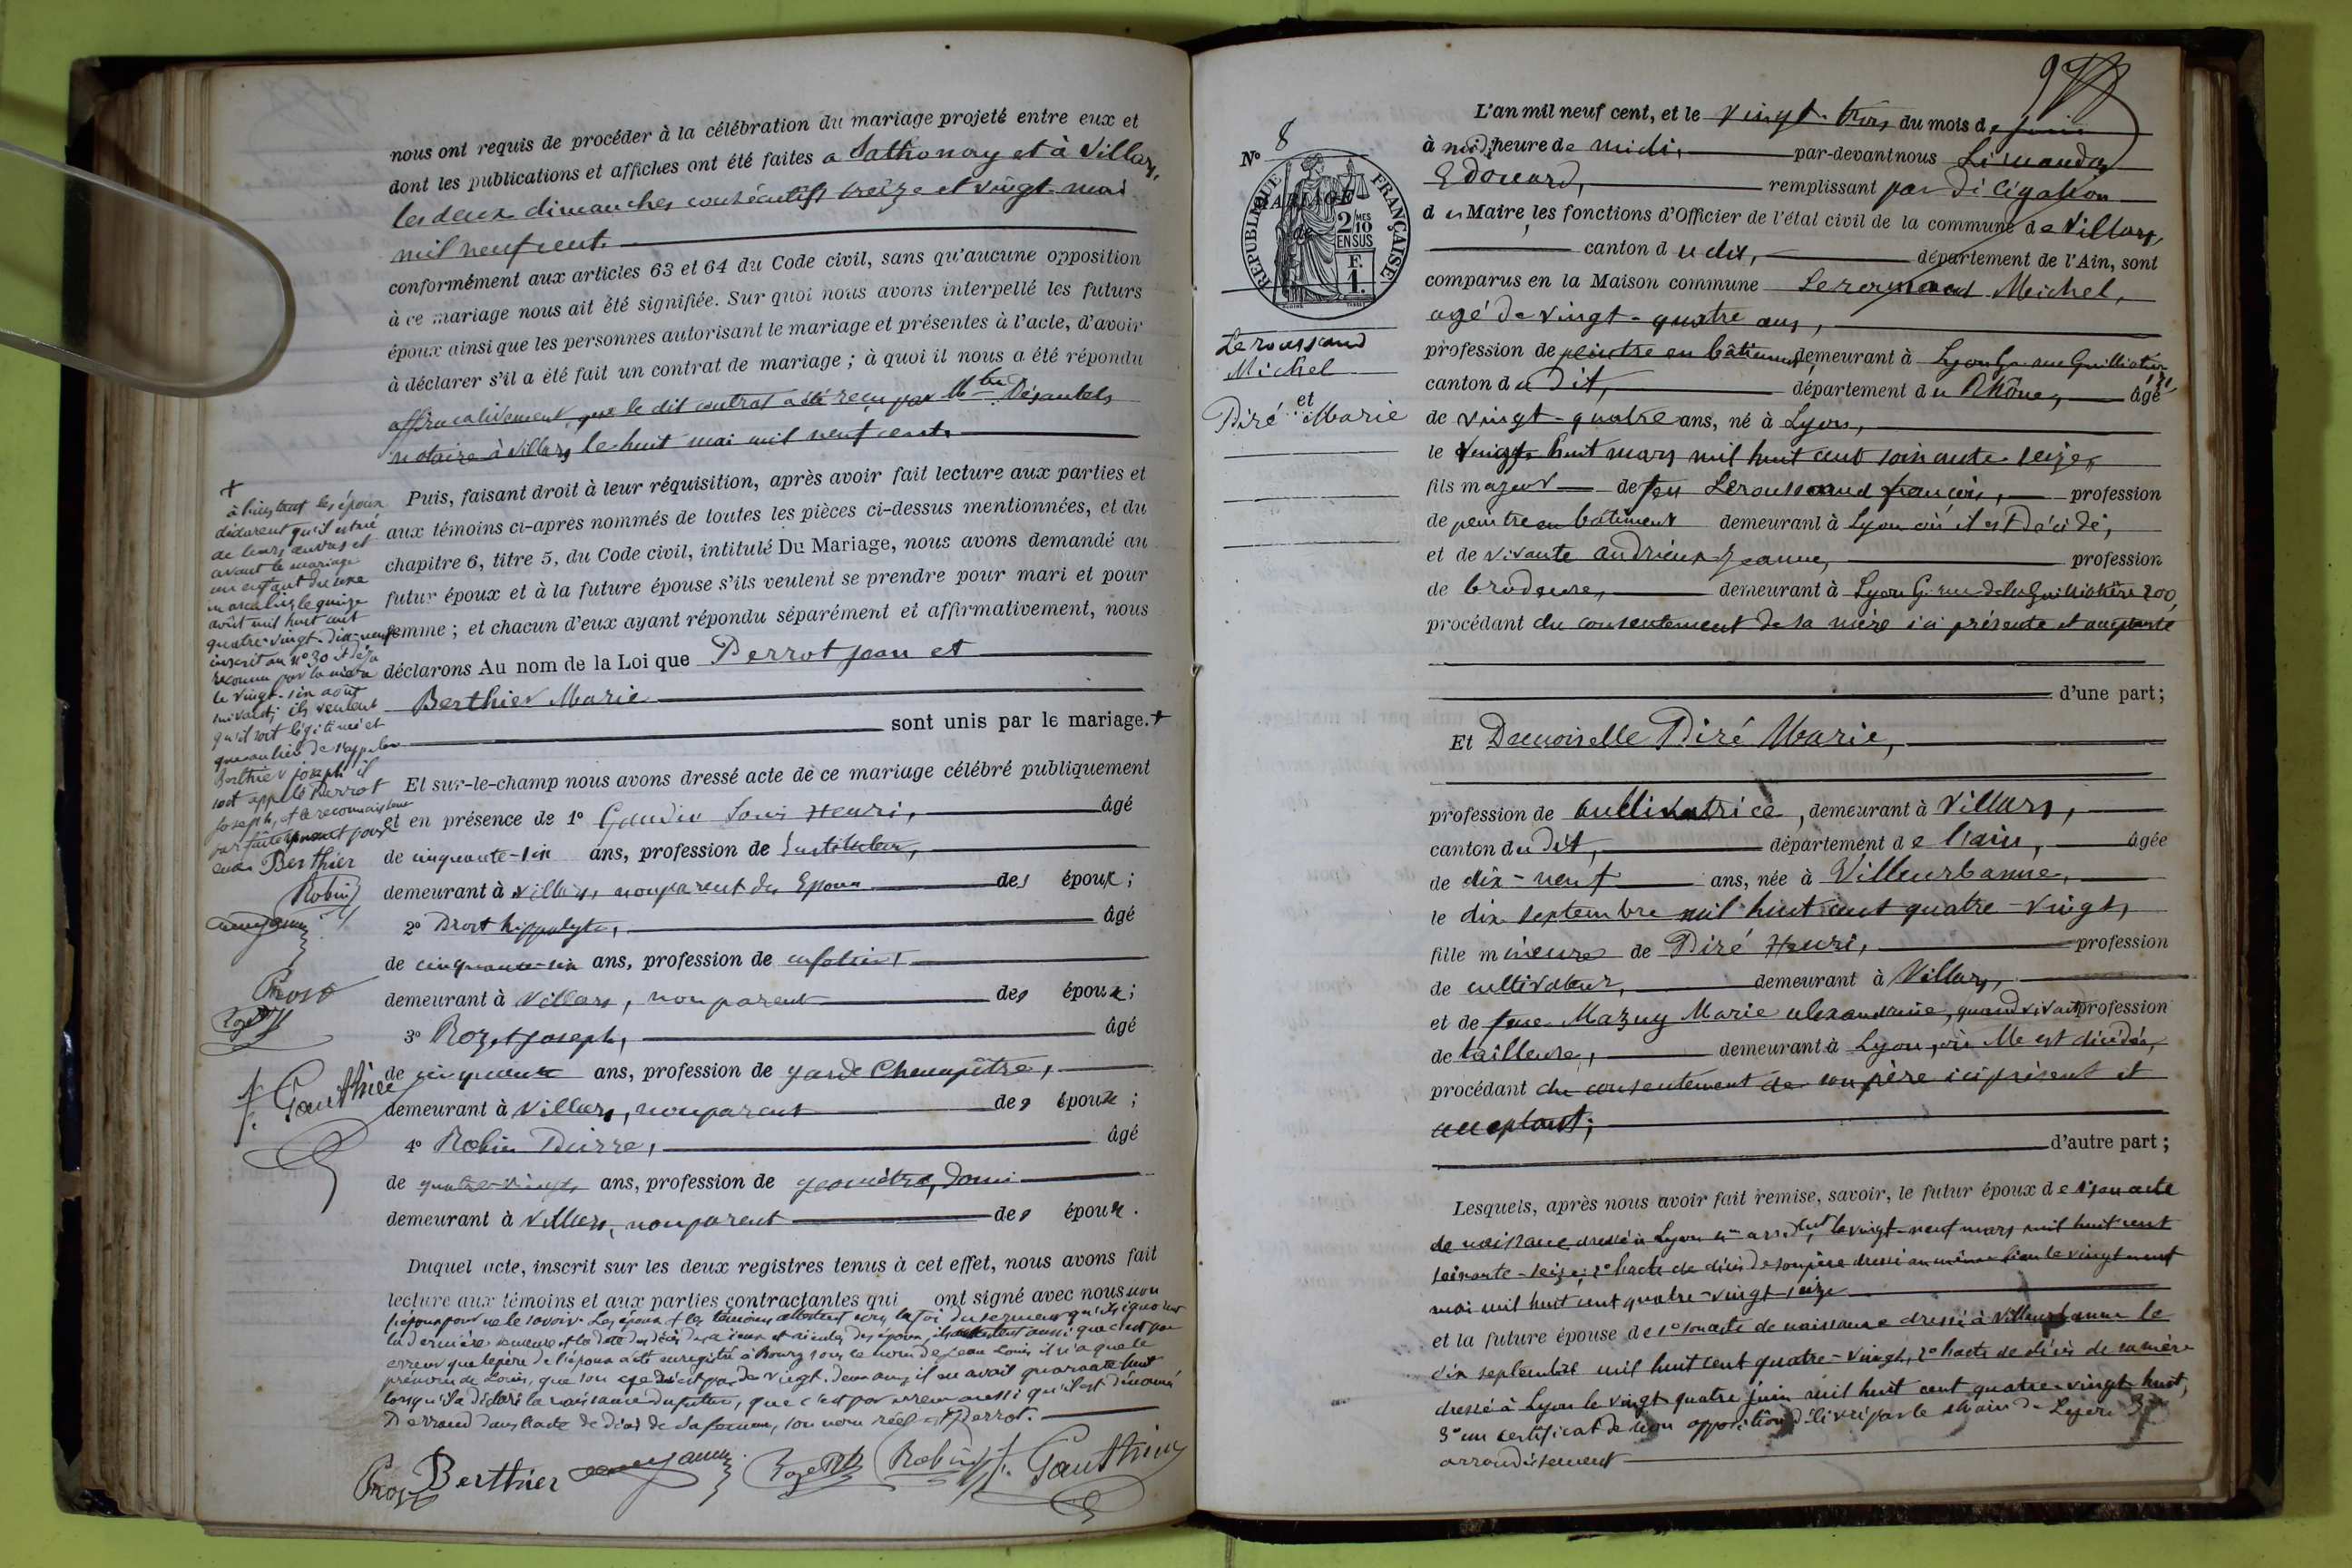 nous ont requis de procéder à la célébration du mariage projeté entre eux et
dont les publications et affiches ont été faites a Sathonay et à Villars,
les deux dimanches consécutifs treize et vingt mai
mil neuf cent.
conformément aux articles 63 et 64 du Code civil, sans qu'aucune opposition
à ce mariage nous ait été signifiée. Sur quoi nous avons interpellé les futurs
époux ainsi que les personnes autorisant le mariage et présentes à l'acte, d'avoir
à déclarer s'il a été fait un contrat de mariage ; à quoi il nous a été répondu
affirmativement, que le dit contrat a été reçu par Mtre Déjantels
notaire à Villars le huit mai mil neuf cent.
Puis, faisant droit à leur réquisition, après avoir fait lecture aux parties et
aux témoins ci-après nommés de toutes les pièces ci-dessus mentionnées, et du
chapitre 6, titre 5, du Code civil, intitulé Du Mariage, nous avons demandé au
futur époux et à la future épouse s'ils veulent se prendre pour mari et pour
femme ; et chacun d'eux ayant répondu séparément et affirmativement, nous
déclarons Au nom de la Loi que Perrot Jean et
Berthier Marie
sont unis par le mariage. +
Et sur-le-champ nous avons dressé acte de ce mariage célébré publiquement
et en présence de 1° Gaudin Louis Henri, âgé
de cinquante-six ans, profession de Instituteur,
demeurant à Villars, non parent des Epoux des époux ;
2° Prost hippolyte, âgé
de cinquante-six ans, profession de
demeurant à Villars, non parent des époux ;
3° Rozet Joseph, âgé
de cinquante ans, profession de garde Champêtre,
demeurant à Villars, non parent des époux ;
4° Robin Pierre, âgé
de quatre-vingts ans, profession de géomètre, domi
demeurant à Villars, non parent des époux.
Duquel acte, inscrit sur les deux registres tenus à cet effet, nous avons fait
lecture aux témoins et aux parties contractantes qui ont signé avec nous non
l'époux pour ne le savoir. Les époux et les témoins attestent sous la foi du serment qu'ils ignorent
la dernière demeure et la date des décès des aïeux et aïeules des époux, ils attestent aussi que c'est par
erreur que le père de l'époux a été enregistré à Bourg sous le nom de Jean Louis il n'a que le
prénom de Louis, que son age était pas de vingt-deux ans, il en avait quarante huit
lorsqu'il a déclaré la naissance du futur, que c'est par erreur aussi qu'il est dénommé
Perraud dans l'acte de décès de sa femme, son nom réel est Perrot.
Prost Berthier Rozet Robin J. Gauthier
+
à l'instant les époux
déclarent qu'il est né
de leurs œuvres et
avant le mariage
un enfant du sexe
masculin, le quinze
août mil huit cent
quatre-vingt-dix-neuf
inscrit au n° 30 et déjà
reconnu par la mère
le vingt-six août
suivant; ils veulent
qu'il soit légitimé et
qu'au lieu de s'appeler
Berthier Joseph il
soit appelé Perrot
Joseph, et le reconnaissent
parfaitement pour
Berthier
Robin
Prost
Rozet
J. Gauthier
97
N° 8
RÉPUBLIQUE FRANÇAISE
MARIAGE
de
2 MES
10
EN SUS
F.
1.
Leroussaud
Michel
et
Piré Marie
L'an mil neuf cent, et le vingt-trois du mois de juin
à midi heure de midi, par-devant nous Limandas
Edouard, remplissant par délégation
du Maire, les fonctions d'Officier de l'état civil de la commune de Villars,
canton du dit, département de l'Ain, sont
comparus en la Maison commune Leroussaud Michel,
agé de vingt-quatre ans,
profession de peintre en bâtiment, demeurant à Lyon Gde rue Guillotière
canton du dit, département du Rhône, âgé
de vingt-quatre ans, né à Lyon,
le vingt-huit mars mil huit cent soixante seize,
fils majeur de feu Leroussaud françois, profession
de peintre en bâtiment demeurant à Lyon où il est décédé,
et de vivante Andrieux Jeanne, profession
de brodeuse, demeurant à Lyon Gde rue de la Guillotière 200,
procédant du consentement de sa mère ici présente et acceptante
d'une part ;
Et Demoiselle Piré Marie,
profession de cultivatrice, demeurant à Villars,
canton du dit, département de l'ain, âgée
de dix-neuf ans, née à Villeurbanne,
le dix septembre mil huit cent quatre-vingt,
fille mineure de Piré Henri, profession
de cultivateur, demeurant à Villars,
et de feue Mazuy Marie alexandrine, quand vivait profession
de tailleuse, demeurant à Lyon, où elle est décédée,
procédant du consentement de son père ici présent et
acceptant ;
d'autre part ;
Lesquels, après nous avoir fait remise, savoir, le futur époux de 1° son acte
de naissance dressé à Lyon arrdent, le vingt-neuf mars mil huit cent
soixante-seize; 2° l'acte de décès de son père dressé au même lieu le vingt neuf
mai mil huit cent quatre-vingt seize
et la future épouse de 1° son acte de naissance dressé à Villeurbanne le
dix septembre mil huit cent quatre-vingt, 2° l'acte de décès de sa mère
dressé à Lyon le vingt quatre juin mil huit cent quatre-vingt huit,
3° un certificat de non opposition délivré par le Maire de Lyon 3e
arrondissement